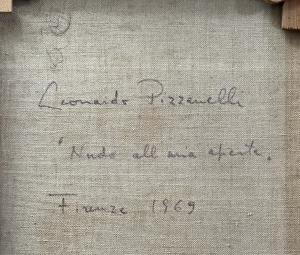 Leonardo Pizzanelli
"Nudo all'aria aperta"
Firenze 1969